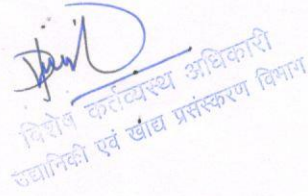 विशेष कर्तव्यस्थ अधिकारी
उद्यानिकी एवं खाद्य प्रसंस्करण विभाग